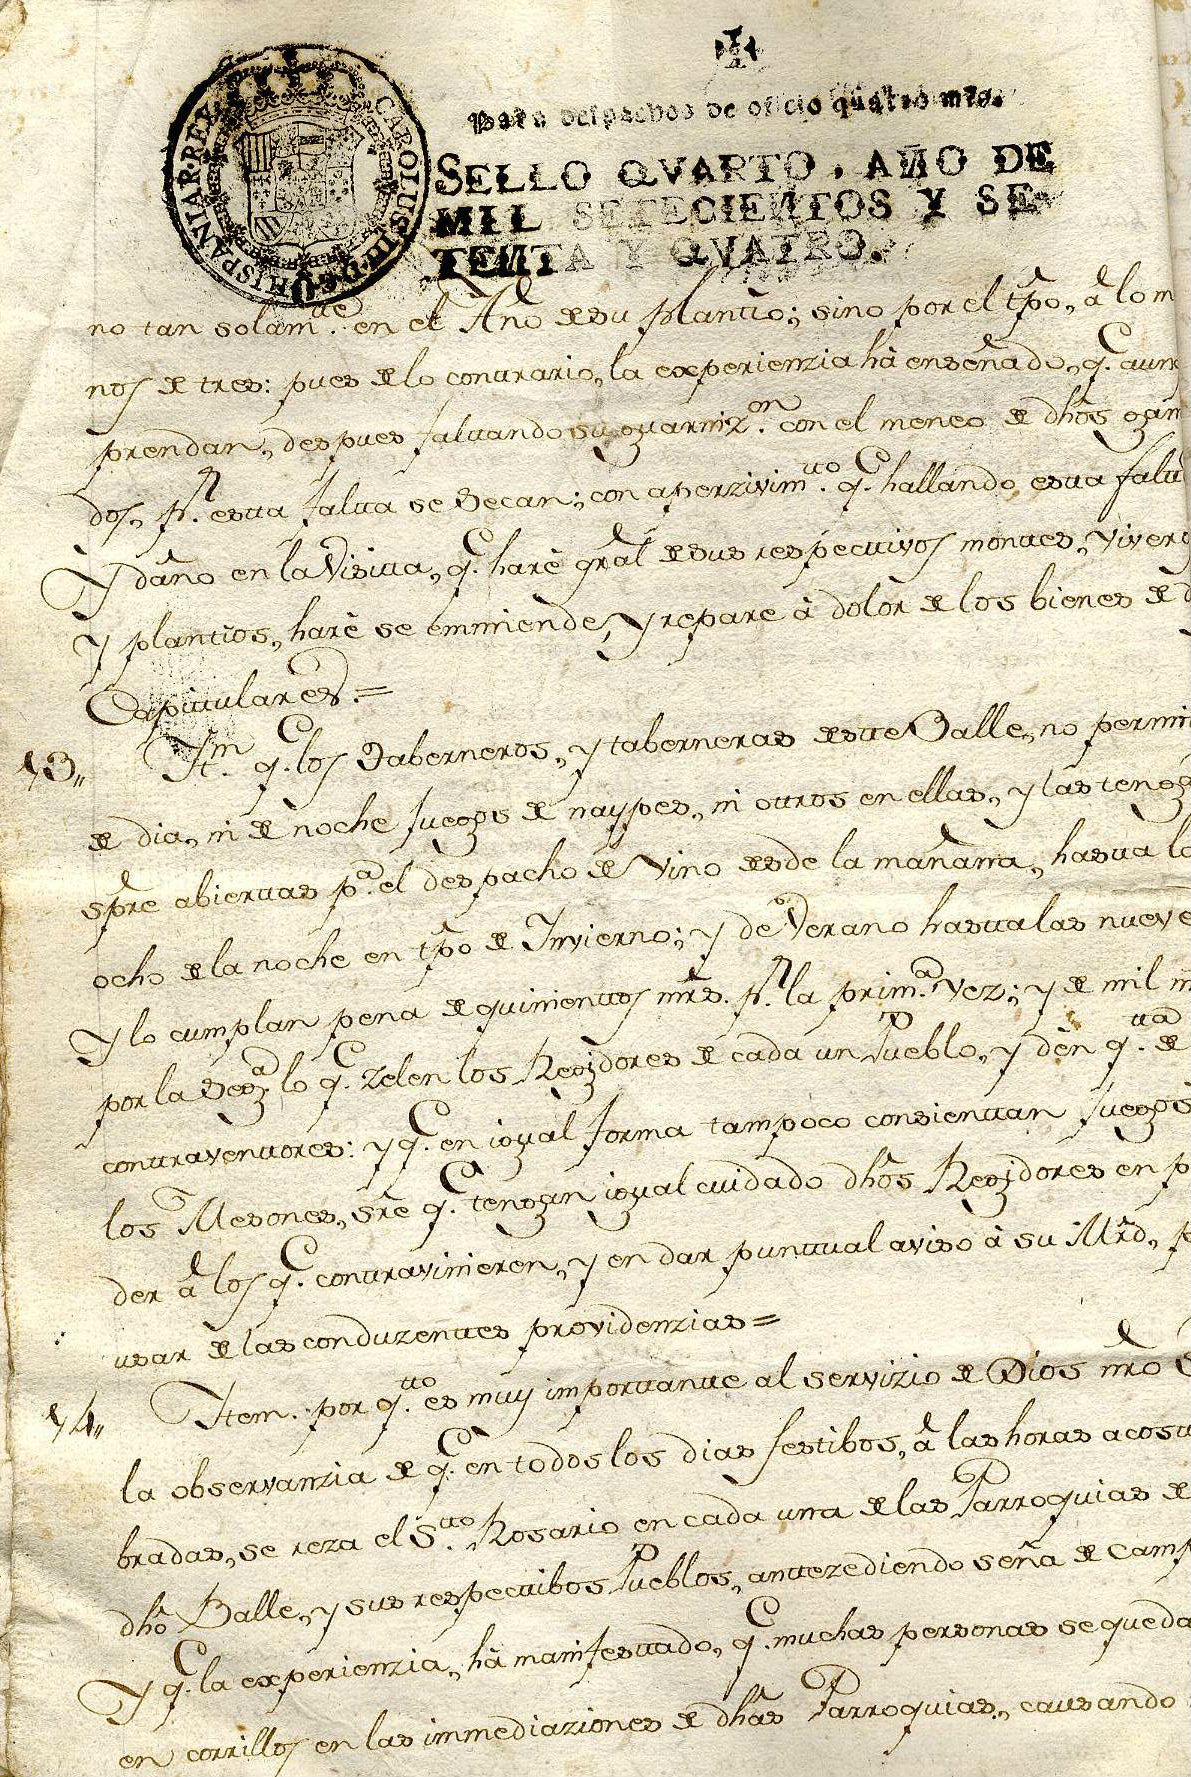 HISPANIAR·REX· CAROLUS·III·D·G·
Para despachos de oficio quatro mrs.
SELLO QVARTO, AÑO DE
MIL SETECIENTOS Y SE-
TENTA Y QVATRO.
no tan solamte. en el Año de su plantio; sino por el tpo, â lo m
nos de tres: pues de lo contrario, la experienzia hà enseñado, q. aunq
prendan, despues faltando su guarnizon. con el meneo de dhos gana
dos, pr. esta falta se secan; con aperzivimto. q. hallando esta falta
Y daño en la Visita, q. harè gral de sus respectivos montes, vivero
y plantios, harè se emmiende, y repare à dolor de los bienes de d
Capitulares.=
13,, Ittm. q. los Taberneros, y taberneras deste Balle, no permit
de dia, ni de noche Juegos de naypes, ni otros en ellas, y las tengan
spre abiertas pa. el despacho de Vino desde la mañana, hasta la
ocho de la noche en tpo de Invierno; y de Verano hasta las nueve
Y lo cumplan pena de quinientos mrs. pr. la prima. vez; y de mil m
por la sega. lo q. zelen los Regidores de cada un Pueblo, y dèn qta. de
contraventores: y q. en igual forma tampoco consientan Juegos
los Mesones, sre q. tengan igual cuidado dhos Regidores en p
der â los q. contravinieren, y en dar puntual aviso à su Mrd, p
usar de las conduzentes providenzias=
14,, Item. por qto. es muy importante al servizio de Dios nro S
la observanzia de q. en todos los dias festibos, â las horas acostu
bradas, se reza el Sto. Rosario en cada una de las Parroquias de
dho Balle, y sus respectibos Pueblos, antezediendo seña de Camp
Y q. la experienzia, hà manifestado, q. muchas personas se queda
en corrillos en las immediaziones de dhas Parroquias, causando